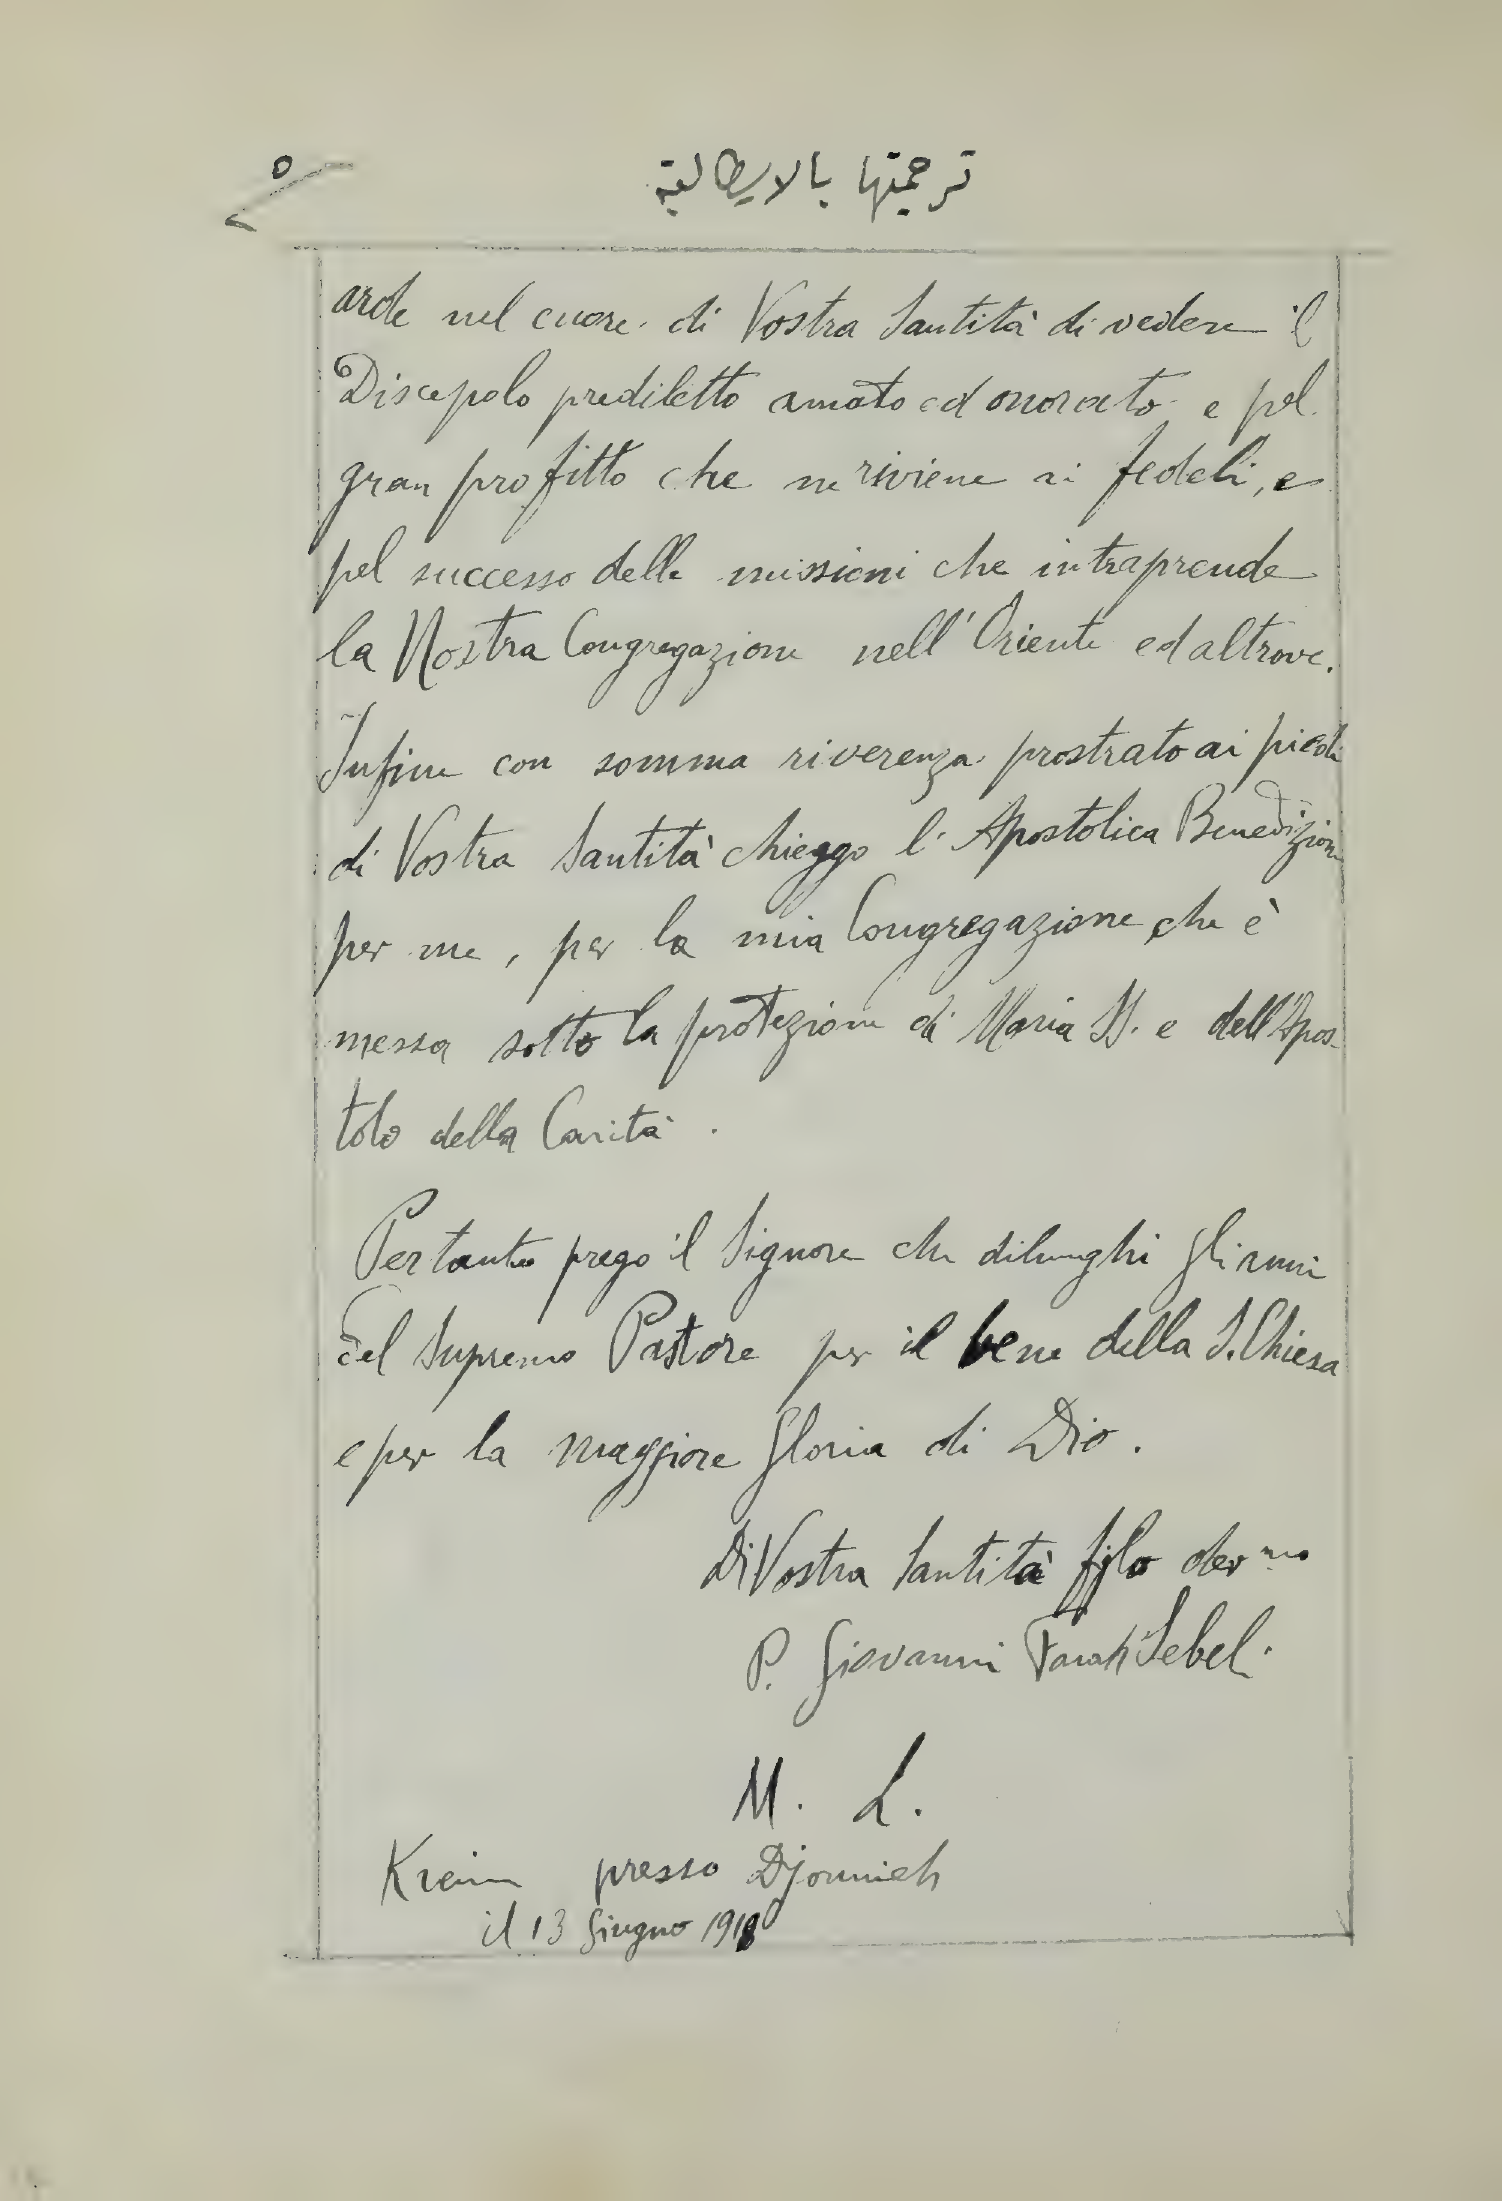 ٥
ترجمتها بالايطالية
arde nel cuore di Vostra Santità di vedere il
Discepolo prediletto amato ed onorato e pel
gran profitto che ne riviene ai fedeli, e
pel successo delle missioni che intraprende
la Nostra Congregazione nell'Oriente ed altrove.
Infine con somma riverenza prostrato ai piedi
di Vostra Santità chieggo l'Apostolica Benedizione
per me, per la mia Congregazione che è
messa sotto la protezione di Maria SS. e dell'Apos-
tolo della Carità.
Pertanto prego il Signore che dilunghi gli anni
del Supremo Pastore per il bene della S. Chiesa
e per la maggiore gloria di Dio.
Di Vostra Santità figlo dev mo
P. Giovanni Farah Sebel.
M. L.
Kreim presso Djounieh
il 13 Giugno 1918